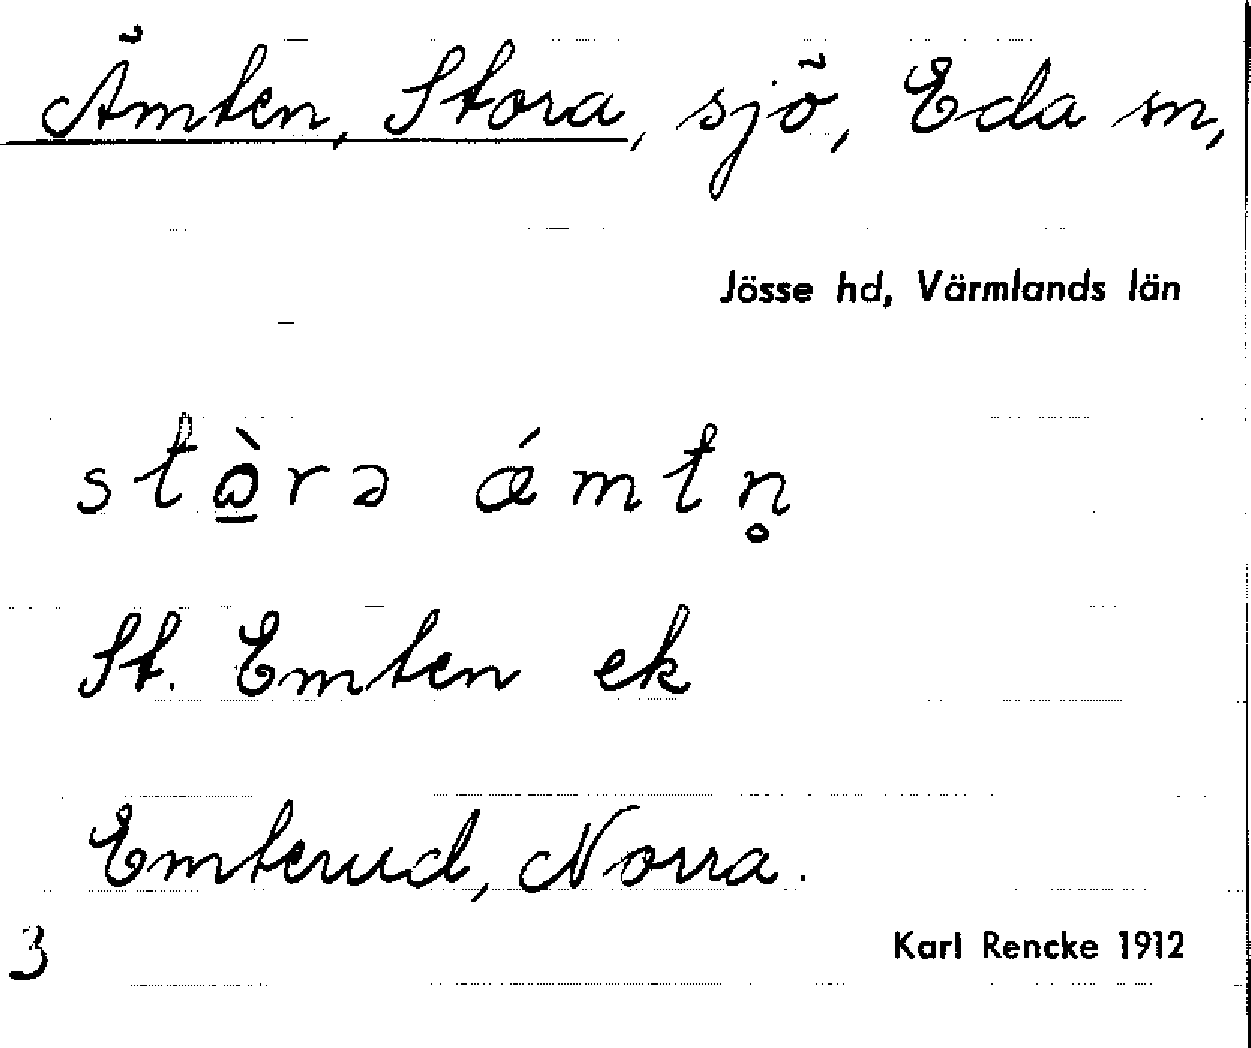 Ämten, Stora, sjö, Eda sn,
Jösse hd, Värmlands län
stɷ̯̀rə ǽmtn̥
St. Emten ek
Emterud, Norra.
3
Karl Rencke 1912